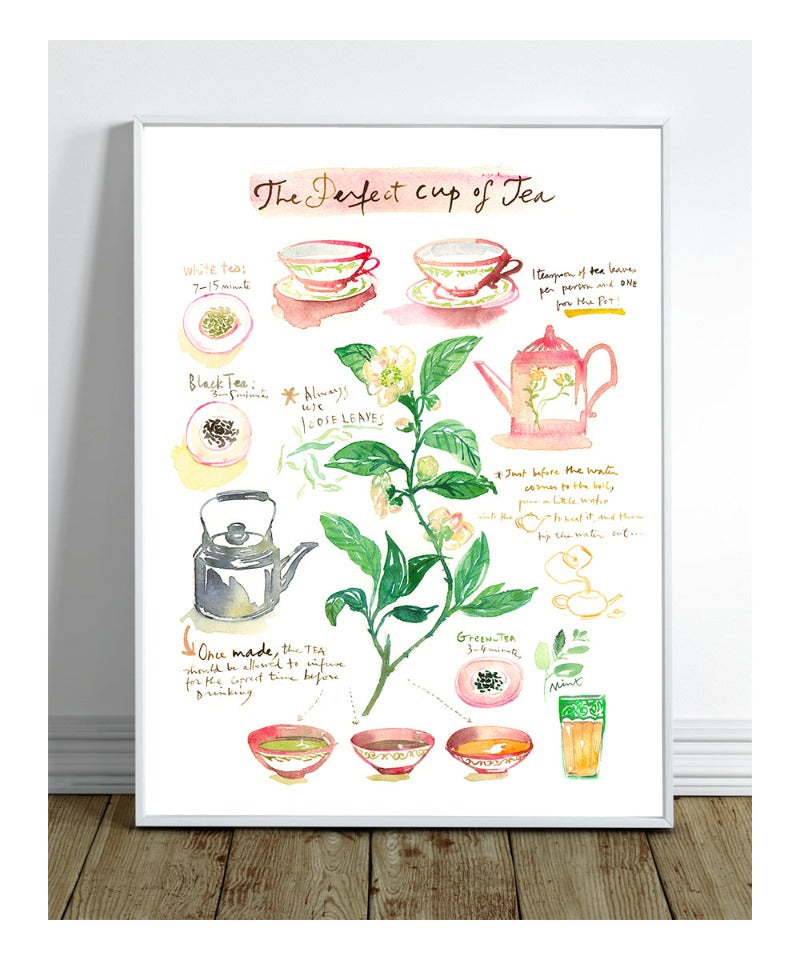 The Perfect cup of Tea
White tea:
7-15 minute
1 teaspoon of tea leaves
per person and ONE
for the Pot!
Black Tea:
3-5 minutes
* Always
use
LOOSE LEAVES
* Just before the water
comes to the boil,
pour a little water
into the to heat it, and then
tip the water out...
Once made, the TEA
should be allowed to infuse
for the correct time before
Drinking
GREEN-TEA
3-4 minute
Mint